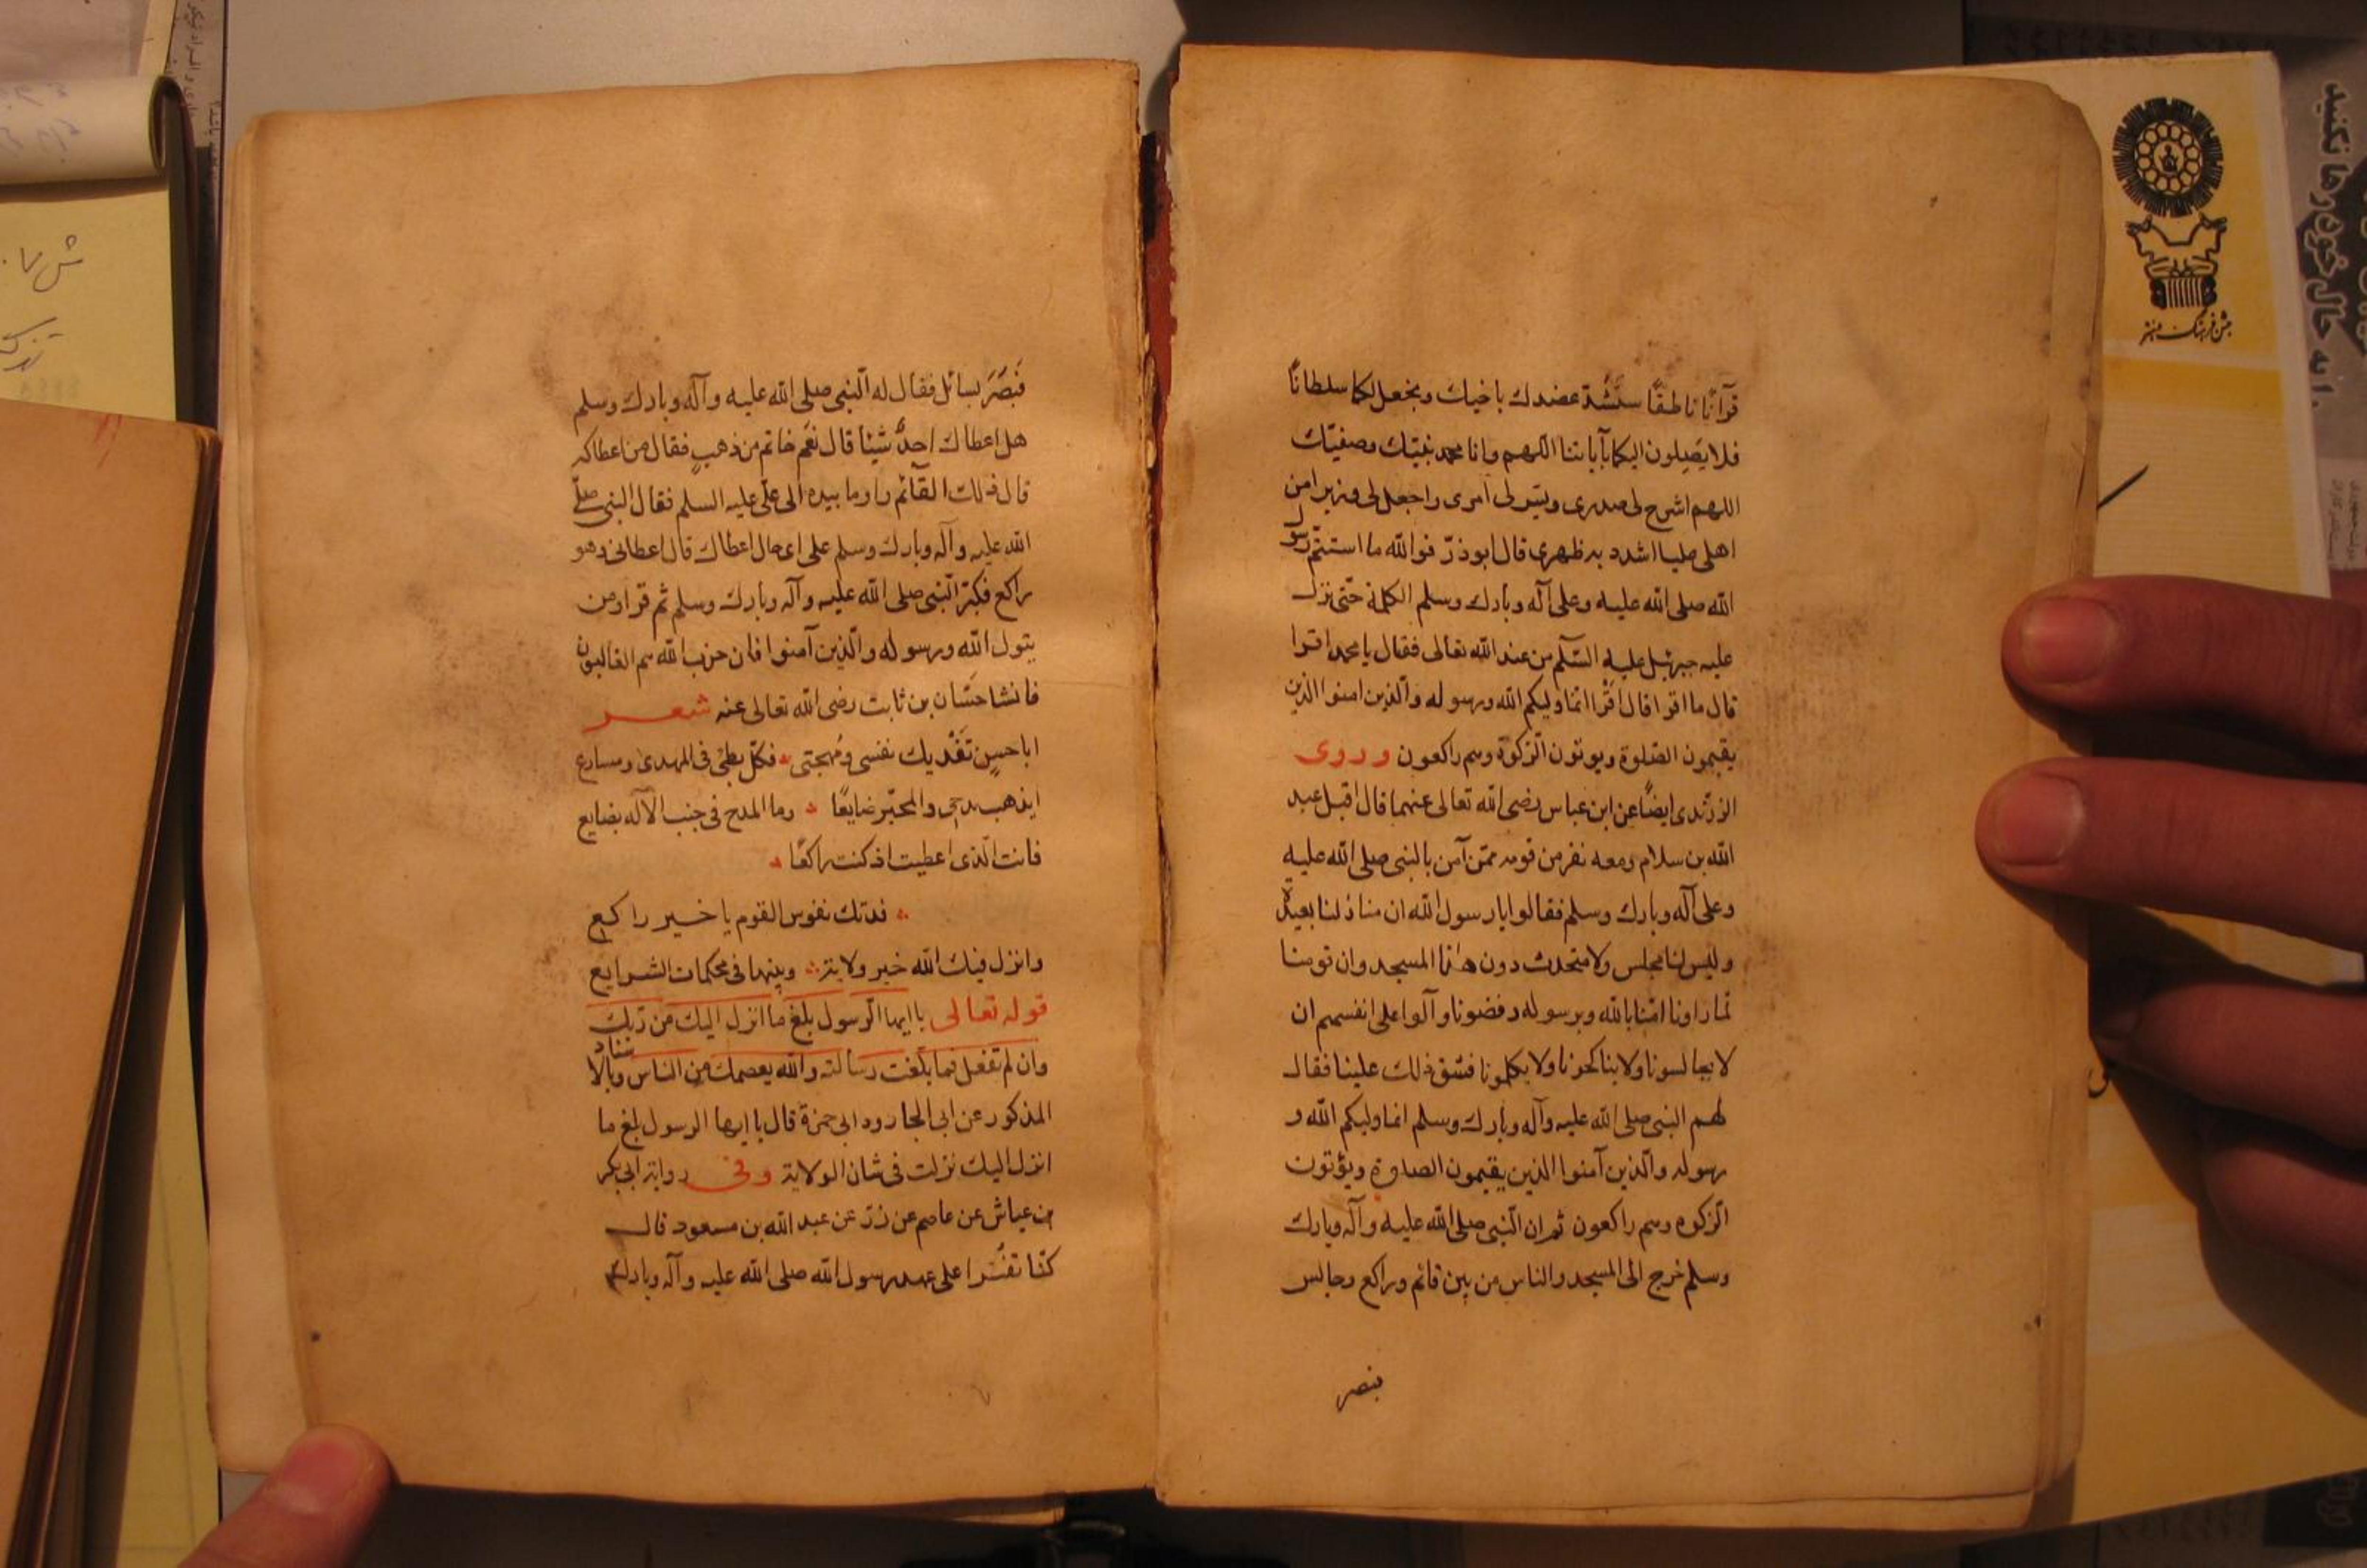 قرآنًا ناطقًا سنَشُدّ عضدك باخيك ونجعل لكما سلطانًا
فلا يَصِلون اليكما بآياتنا اللهم وانا محمد نبيّك وصفيّك
اللهم اشرح لى صدرى ويسّر لى امرى واجعل لى وزيرا من
اهلى عليا اشدد به ظهرى قال ابوذرّ فوالله ما استتمّ رسول
الله صلى الله عليه وعلى آله وبارك وسلم الكلمة حتّى نزل
عليه جبرئيل عليه السّلم من عند الله تعالى فقال يا محمد اقرا
قال ما اقرا قال اقرا انّما وليكم الله ورسوله والّذين امنوا الذين
يقيمون الصّلوة ويوتون الزكوة وهم راكعون وروى
الزرندى ايضًا عن ابن عباس رضى الله تعالى عنهما قال اقبل عبد
الله بن سلام ومعه نفر من قومه ممّن آمن بالنبى صلى الله عليه
وعلى آله وبارك وسلم فقالوا يا رسول الله ان منازلنا بعيدة
وليس لنا مجلس ولا متحدث دون هذا المسجد وان قومنا
لمّا راونا امّنا بالله وبرسوله رفضونا وآلوا على انفسهم ان
لا يجالسونا ولا يناكحونا ولا يكلمونا فشق ذلك علينا فقال
لهم النبى صلى الله عليه وآله وبارك وسلم انما وليكم الله و
رسوله والّذين آمنوا الذين يقيمون الصلوة ويؤتون
الزكوه وهم راكعون ثم ان النّبى صلى الله عليه وآله وبارك
وسلم خرج الى المسجد والناس من بين قائم وراكع وجالس
فبصر
فَبَصَرَ بسائل فقال له النّبى صلى الله عليه وآله وبارك وسلم
هل اعطاك احدٌ شيئا قال نعَم خاتم من ذهبٍ فقال من اعطاكه
قال ذلك القآئم واوما بيده الى علّى عليه السلم فقال النبى صلى
الله عليه وآله وبارك وسلم على اى حال اعطاك قال اعطانى وهو
راكع فكبّر النّبى صلى الله عليه وآله وبارك وسلم ثم قرا ومن
يتول الله ورسوله والّذين آمنوا فان حزب الله هم الغالبون
فانشا حسّان بن ثابت رضى الله تعالى عنه شعر
اباحسنٍ تَفْديك نفسى ومُهجتى فكلّ بطئ فى الهدى ومسارع
ايذهب مدحى والمحبّر ضايعًا وما المدح فى جنب الآله بضايع
فانت الّذى اعطيت اذ كنت راكعًا
فدتك نفوس القوم يا خير راكع
وانزل فيك الله خير ولاية وبينها فى محكمات الشرايع
قوله تعالى يا ايها الرّسول بلغ ما انزل اليك من ربك
وان لم تفعل فما بلّغت رسالته والله يعصمك من الناس وبالاسناد
المذكور عن ابى الجارود ابى حمزة قال يا ايها الرسول بلغ ما
انزل اليك نزلت فى شان الولاية وفى رواية ابى بكر
بن عياش عن عاصم عن زرّ عن عبد الله بن مسعود قال
كنّا نقرا على عهد رسول الله صلى الله عليه وآله وبارك
جشن فرهنگ و هنر